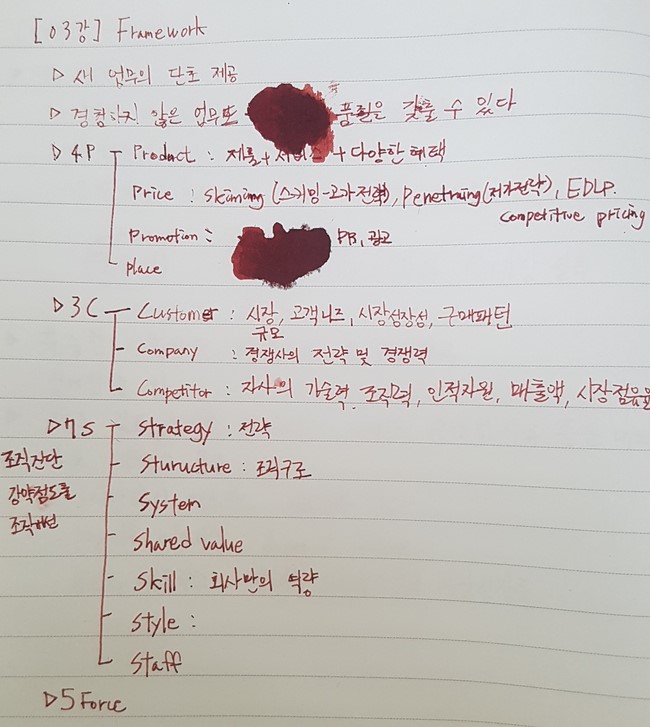 [03강] Framework
▷ 새 업무의 단초 제공
▷ 경험하지 않은 업무도 품질을 갖출 수 있다
▷ 4P Product : 제품 + 서비스 + 다양한 혜택
Price : skiming (스키밍-고가전략), penetrning (저가전략), EDLP.
competitive pricing
Promotion : PR, 광고
place
▷ 3C Customer : 시장, 고객니즈, 시장성장성, 구매패턴
규모
Company : 경쟁사의 전략 및 경쟁력
Competitor : 자사의 기술력, 조직력, 인적자원, 매출액, 시장점유율
▷ 7S strategy : 전략
조직진단 Sturucture : 조직구조
강약점도출 System
조직개선 shared value
Skill : 회사만의 역량
style :
staff
▷ 5 Force